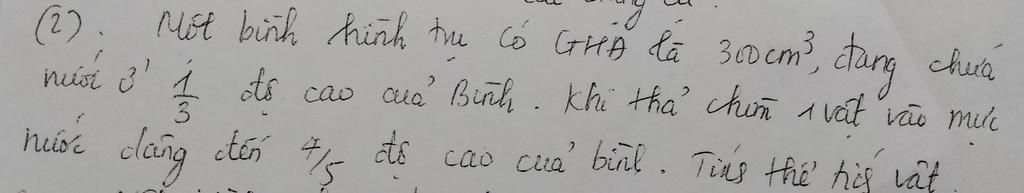 (2). Một bình hình trụ có GHĐ là 300cm³, đang chứa
nước ở 1/3 độ cao của Bình. Khi thả chìm 1 vật vào mực
nước dâng đến 4/5 độ cao của bình. Tính thể tích vật